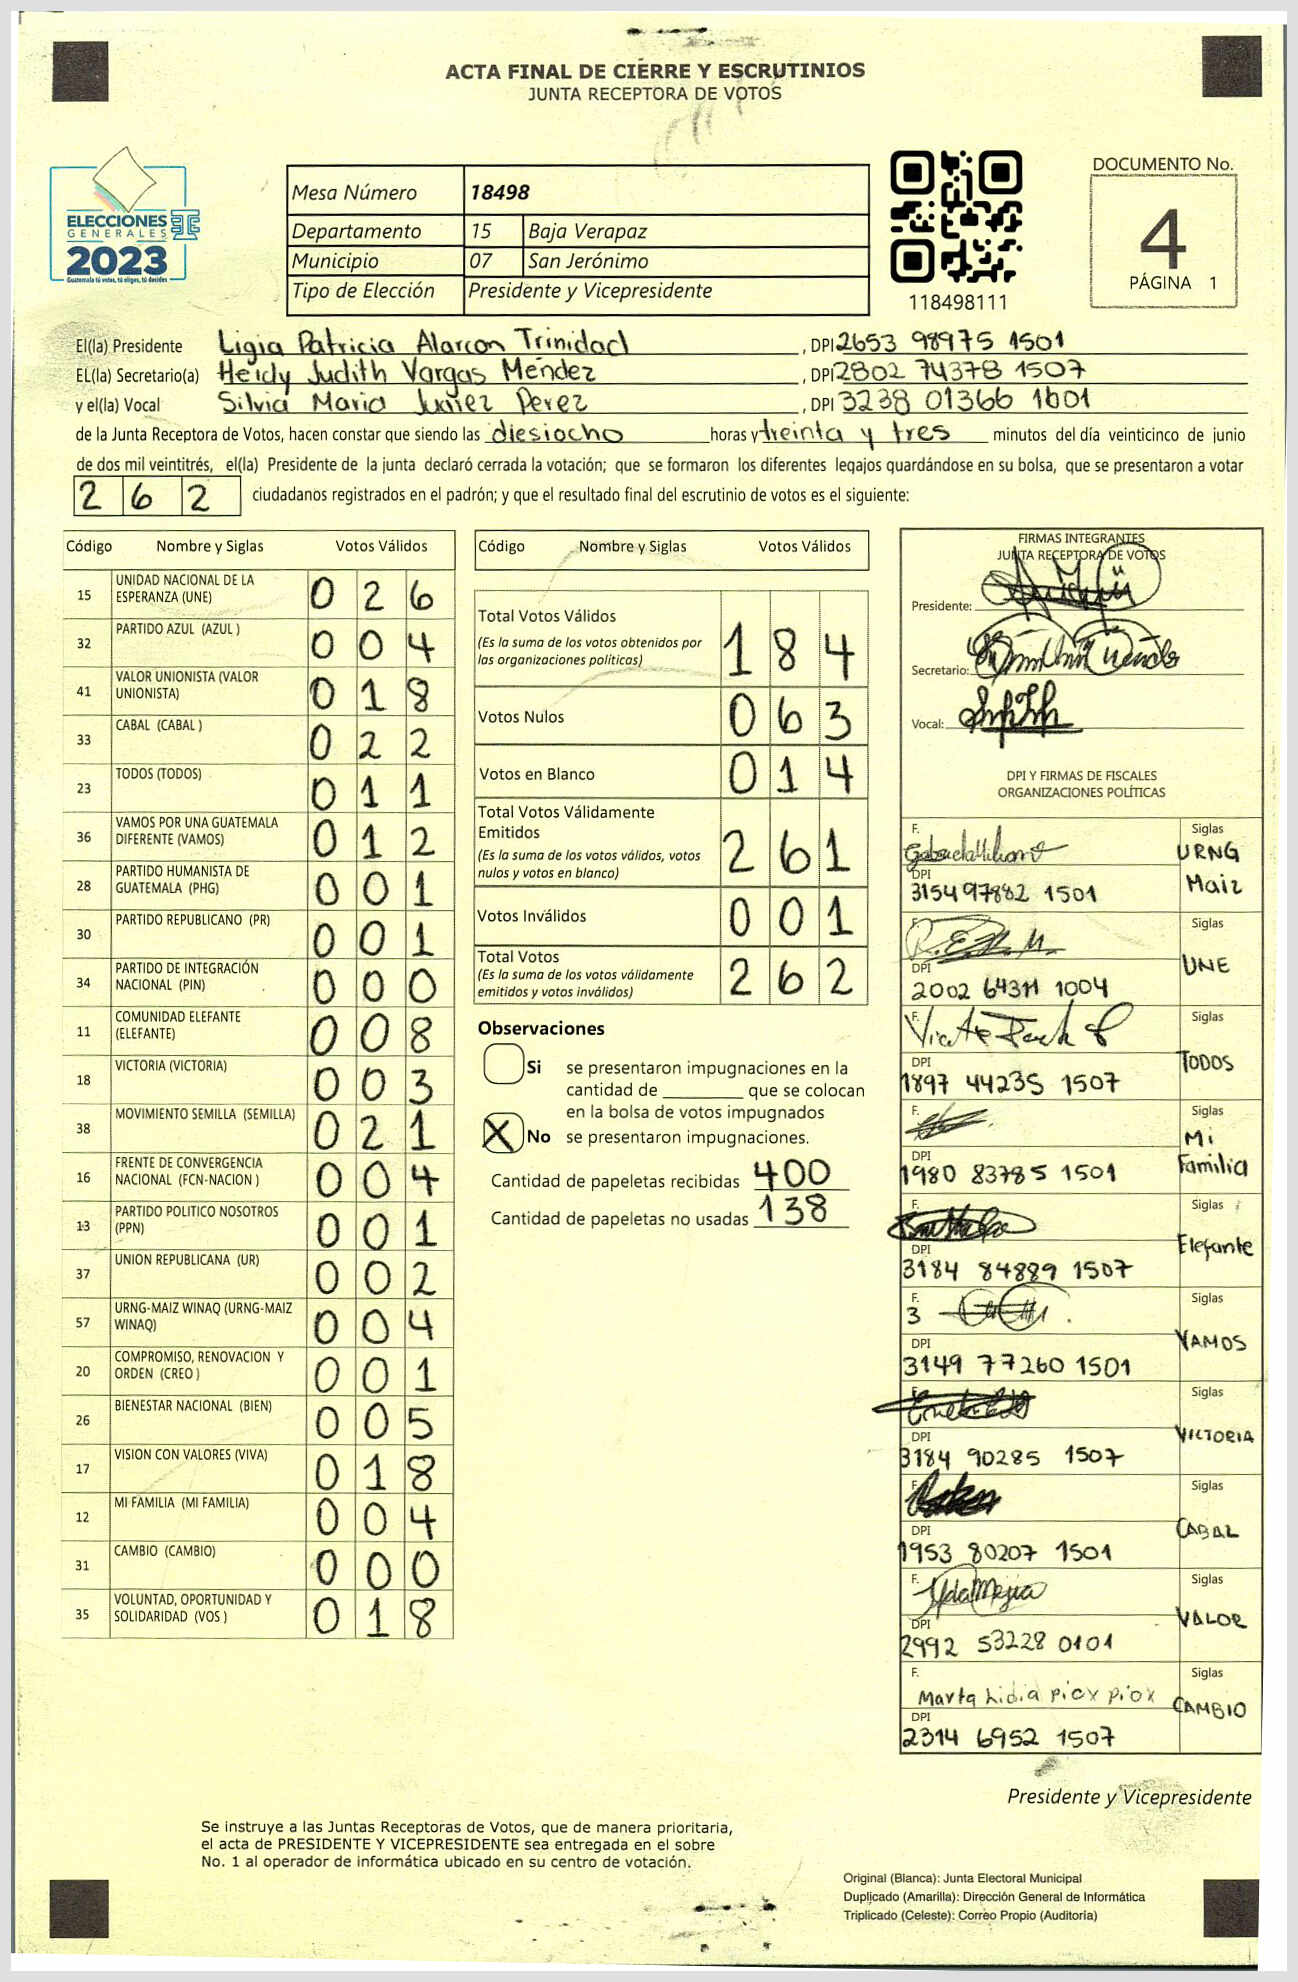 ACTA FINAL DE CIERRE Y ESCRUTINIOS
JUNTA RECEPTORA DE VOTOS
ELECCIONES
GENERALES
2023
Guatemala tú votas, tú eliges, tú decides
Mesa Número 18498
Departamento 15 Baja Verapaz
Municipio 07 San Jerónimo
Tipo de Elección Presidente y Vicepresidente
118498111
DOCUMENTO No.
4
PÁGINA 1
El(la) Presidente Ligia Patricia Alarcon Trinidad , DPI 2653 98975 1501
EL(la) Secretario(a) Heidy Judith Vargas Méndez , DPI 2802 74378 1507
y el(la) Vocal Silvia Maria Perez , DPI 3238 01366 1601
de la Junta Receptora de Votos, hacen constar que siendo las diesiocho horas y treinta y tres minutos del día veinticinco de junio
de dos mil veintitrés, el(la) Presidente de la junta declaró cerrada la votación; que se formaron los diferentes legajos quardándose en su bolsa, que se presentaron a votar
2 6 2 ciudadanos registrados en el padrón; y que el resultado final del escrutinio de votos es el siguiente:
Código Nombre y Siglas Votos Válidos
15 UNIDAD NACIONAL DE LA ESPERANZA (UNE) 0 2 6
32 PARTIDO AZUL (AZUL ) 0 0 4
41 VALOR UNIONISTA (VALOR UNIONISTA) 0 1 8
33 CABAL (CABAL ) 0 2 2
23 TODOS (TODOS) 0 1 1
36 VAMOS POR UNA GUATEMALA DIFERENTE (VAMOS) 0 1 2
28 PARTIDO HUMANISTA DE GUATEMALA (PHG) 0 0 1
30 PARTIDO REPUBLICANO (PR) 0 0 1
34 PARTIDO DE INTEGRACIÓN NACIONAL (PIN) 0 0 0
11 COMUNIDAD ELEFANTE (ELEFANTE) 0 0 8
18 VICTORIA (VICTORIA) 0 0 3
38 MOVIMIENTO SEMILLA (SEMILLA) 0 2 1
16 FRENTE DE CONVERGENCIA NACIONAL (FCN-NACION ) 0 0 4
13 PARTIDO POLITICO NOSOTROS (PPN) 0 0 1
37 UNION REPUBLICANA (UR) 0 0 2
57 URNG-MAIZ WINAQ (URNG-MAIZ WINAQ) 0 0 4
20 COMPROMISO, RENOVACION Y ORDEN (CREO ) 0 0 1
26 BIENESTAR NACIONAL (BIEN) 0 0 5
17 VISION CON VALORES (VIVA) 0 1 8
12 MI FAMILIA (MI FAMILIA) 0 0 4
31 CAMBIO (CAMBIO) 0 0 0
35 VOLUNTAD, OPORTUNIDAD Y SOLIDARIDAD (VOS ) 0 1 8
Código Nombre y Siglas Votos Válidos
Total Votos Válidos
(Es la suma de los votos obtenidos por las organizaciones políticas) 1 8 4
Votos Nulos 0 6 3
Votos en Blanco 0 1 4
Total Votos Válidamente Emitidos
(Es la suma de los votos válidos, votos nulos y votos en blanco) 2 6 1
Votos Inválidos 0 0 1
Total Votos
(Es la suma de los votos válidamente emitidos y votos inválidos) 2 6 2
Observaciones
Si se presentaron impugnaciones en la
cantidad de ________ que se colocan
en la bolsa de votos impugnados
X No se presentaron impugnaciones.
Cantidad de papeletas recibidas 400
Cantidad de papeletas no usadas 138
FIRMAS INTEGRANTES
JUNTA RECEPTORA DE VOTOS
Presidente:
Secretario:
Vocal:
DPI Y FIRMAS DE FISCALES
ORGANIZACIONES POLÍTICAS
F. Siglas
URNG Maiz
DPI
3154 97882 1501
F. Siglas
UNE
DPI
2002 64311 1004
F. Siglas
TODOS
DPI
1897 44235 1507
F. Siglas
Mi Familia
DPI
1980 83785 1501
F. Siglas
Elefante
DPI
3184 84889 1507
F. Siglas
3
VAMOS
DPI
3149 77260 1501
F. Siglas
VICTORIA
DPI
3184 90285 1507
F. Siglas
CABAL
DPI
1953 80207 1501
F. Siglas
VALOR
DPI
2992 53228 0101
F. Siglas
Marta Lidia piox piox CAMBIO
DPI
2314 6952 1507
Presidente y Vicepresidente
Se instruye a las Juntas Receptoras de Votos, que de manera prioritaria,
el acta de PRESIDENTE Y VICEPRESIDENTE sea entregada en el sobre
No. 1 al operador de informática ubicado en su centro de votación.
Original (Blanca): Junta Electoral Municipal
Duplicado (Amarilla): Dirección General de Informática
Triplicado (Celeste): Correo Propio (Auditoría)